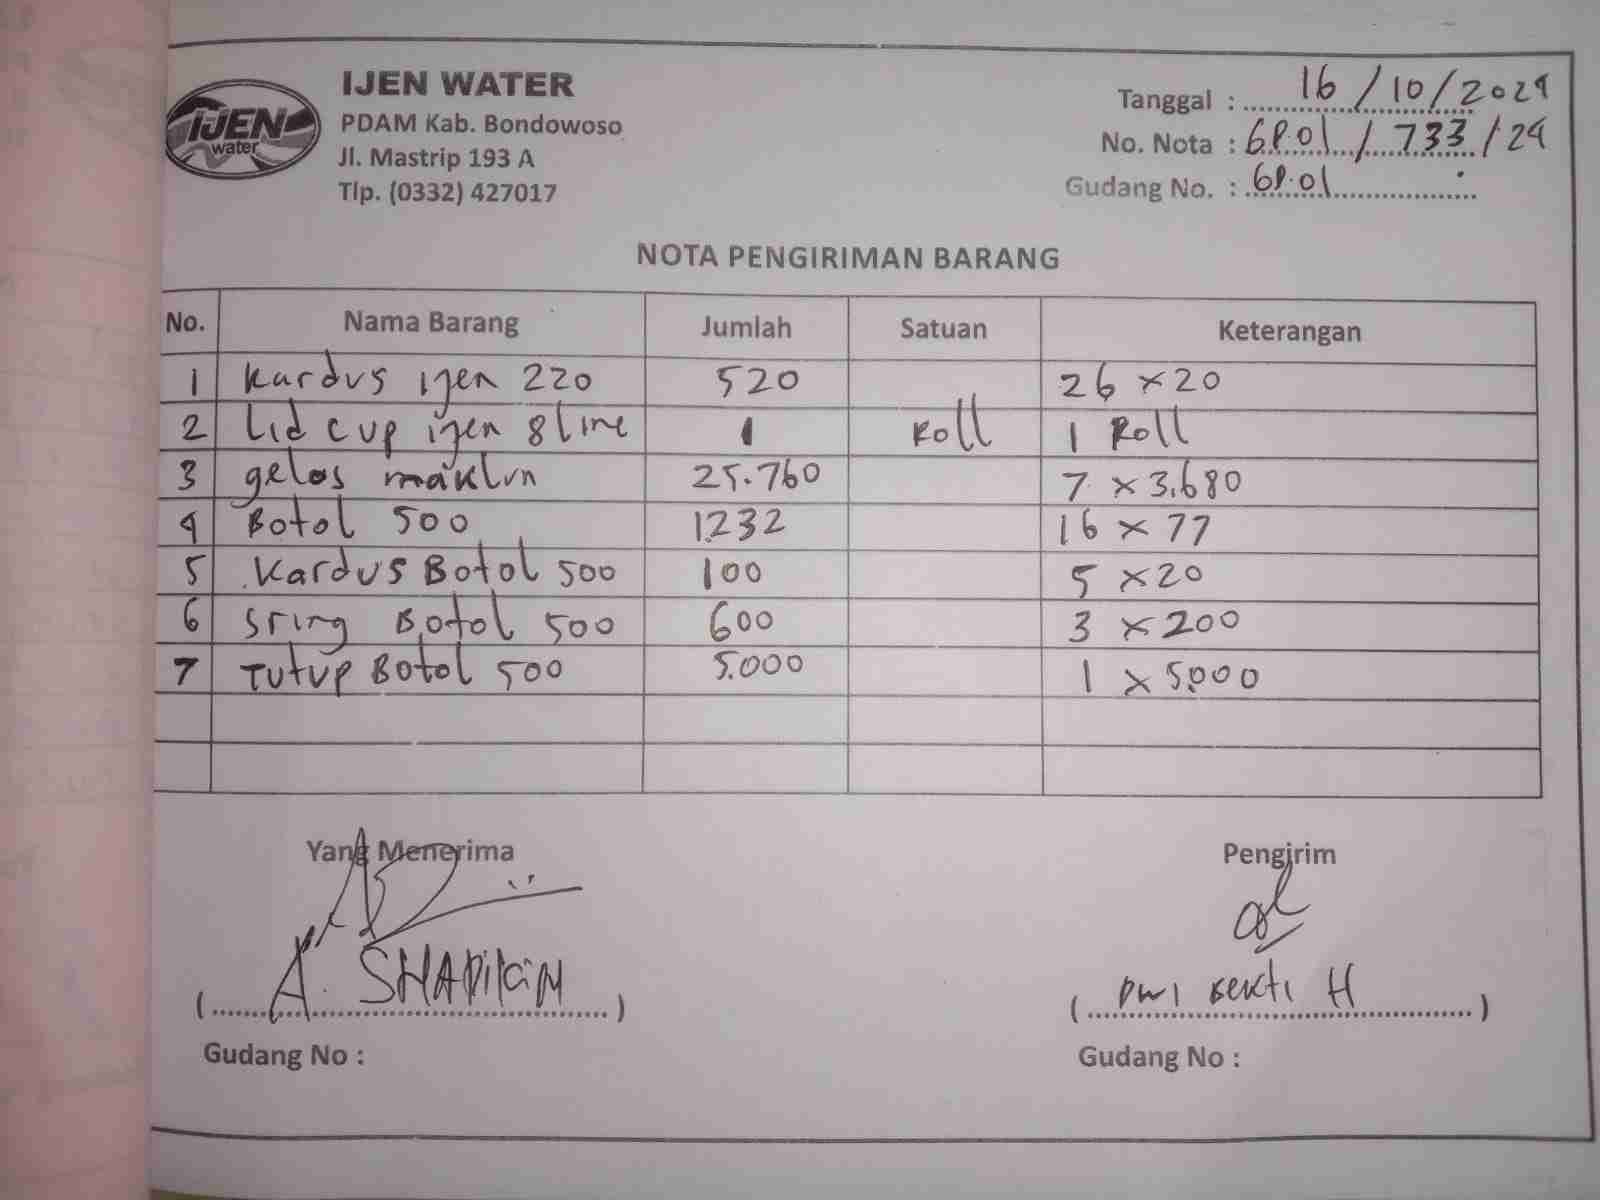 IJEN WATER
IJEN
water
PDAM Kab. Bondowoso
Jl. Mastrip 193 A
Tlp. (0332) 427017
Tanggal : 16/10/2024
No. Nota : 6P.01/733/24
Gudang No. : 6P.01
NOTA PENGIRIMAN BARANG
No. Nama Barang Jumlah Satuan Keterangan
1 Kardus ijen 220 520 26 x 20
2 Lid cup ijen 8 line 1 Roll 1 Roll
3 gelas maklun 25.760 7 x 3.680
4 Botol 500 1.232 16 x 77
5 Kardus Botol 500 100 5 x 20
6 Sring Botol 500 600 3 x 200
7 Tutup Botol 500 5.000 1 x 5.000
Yang Menerima Pengirim
(A. SHADIKIN) (Dwi Bekti H)
Gudang No : Gudang No :